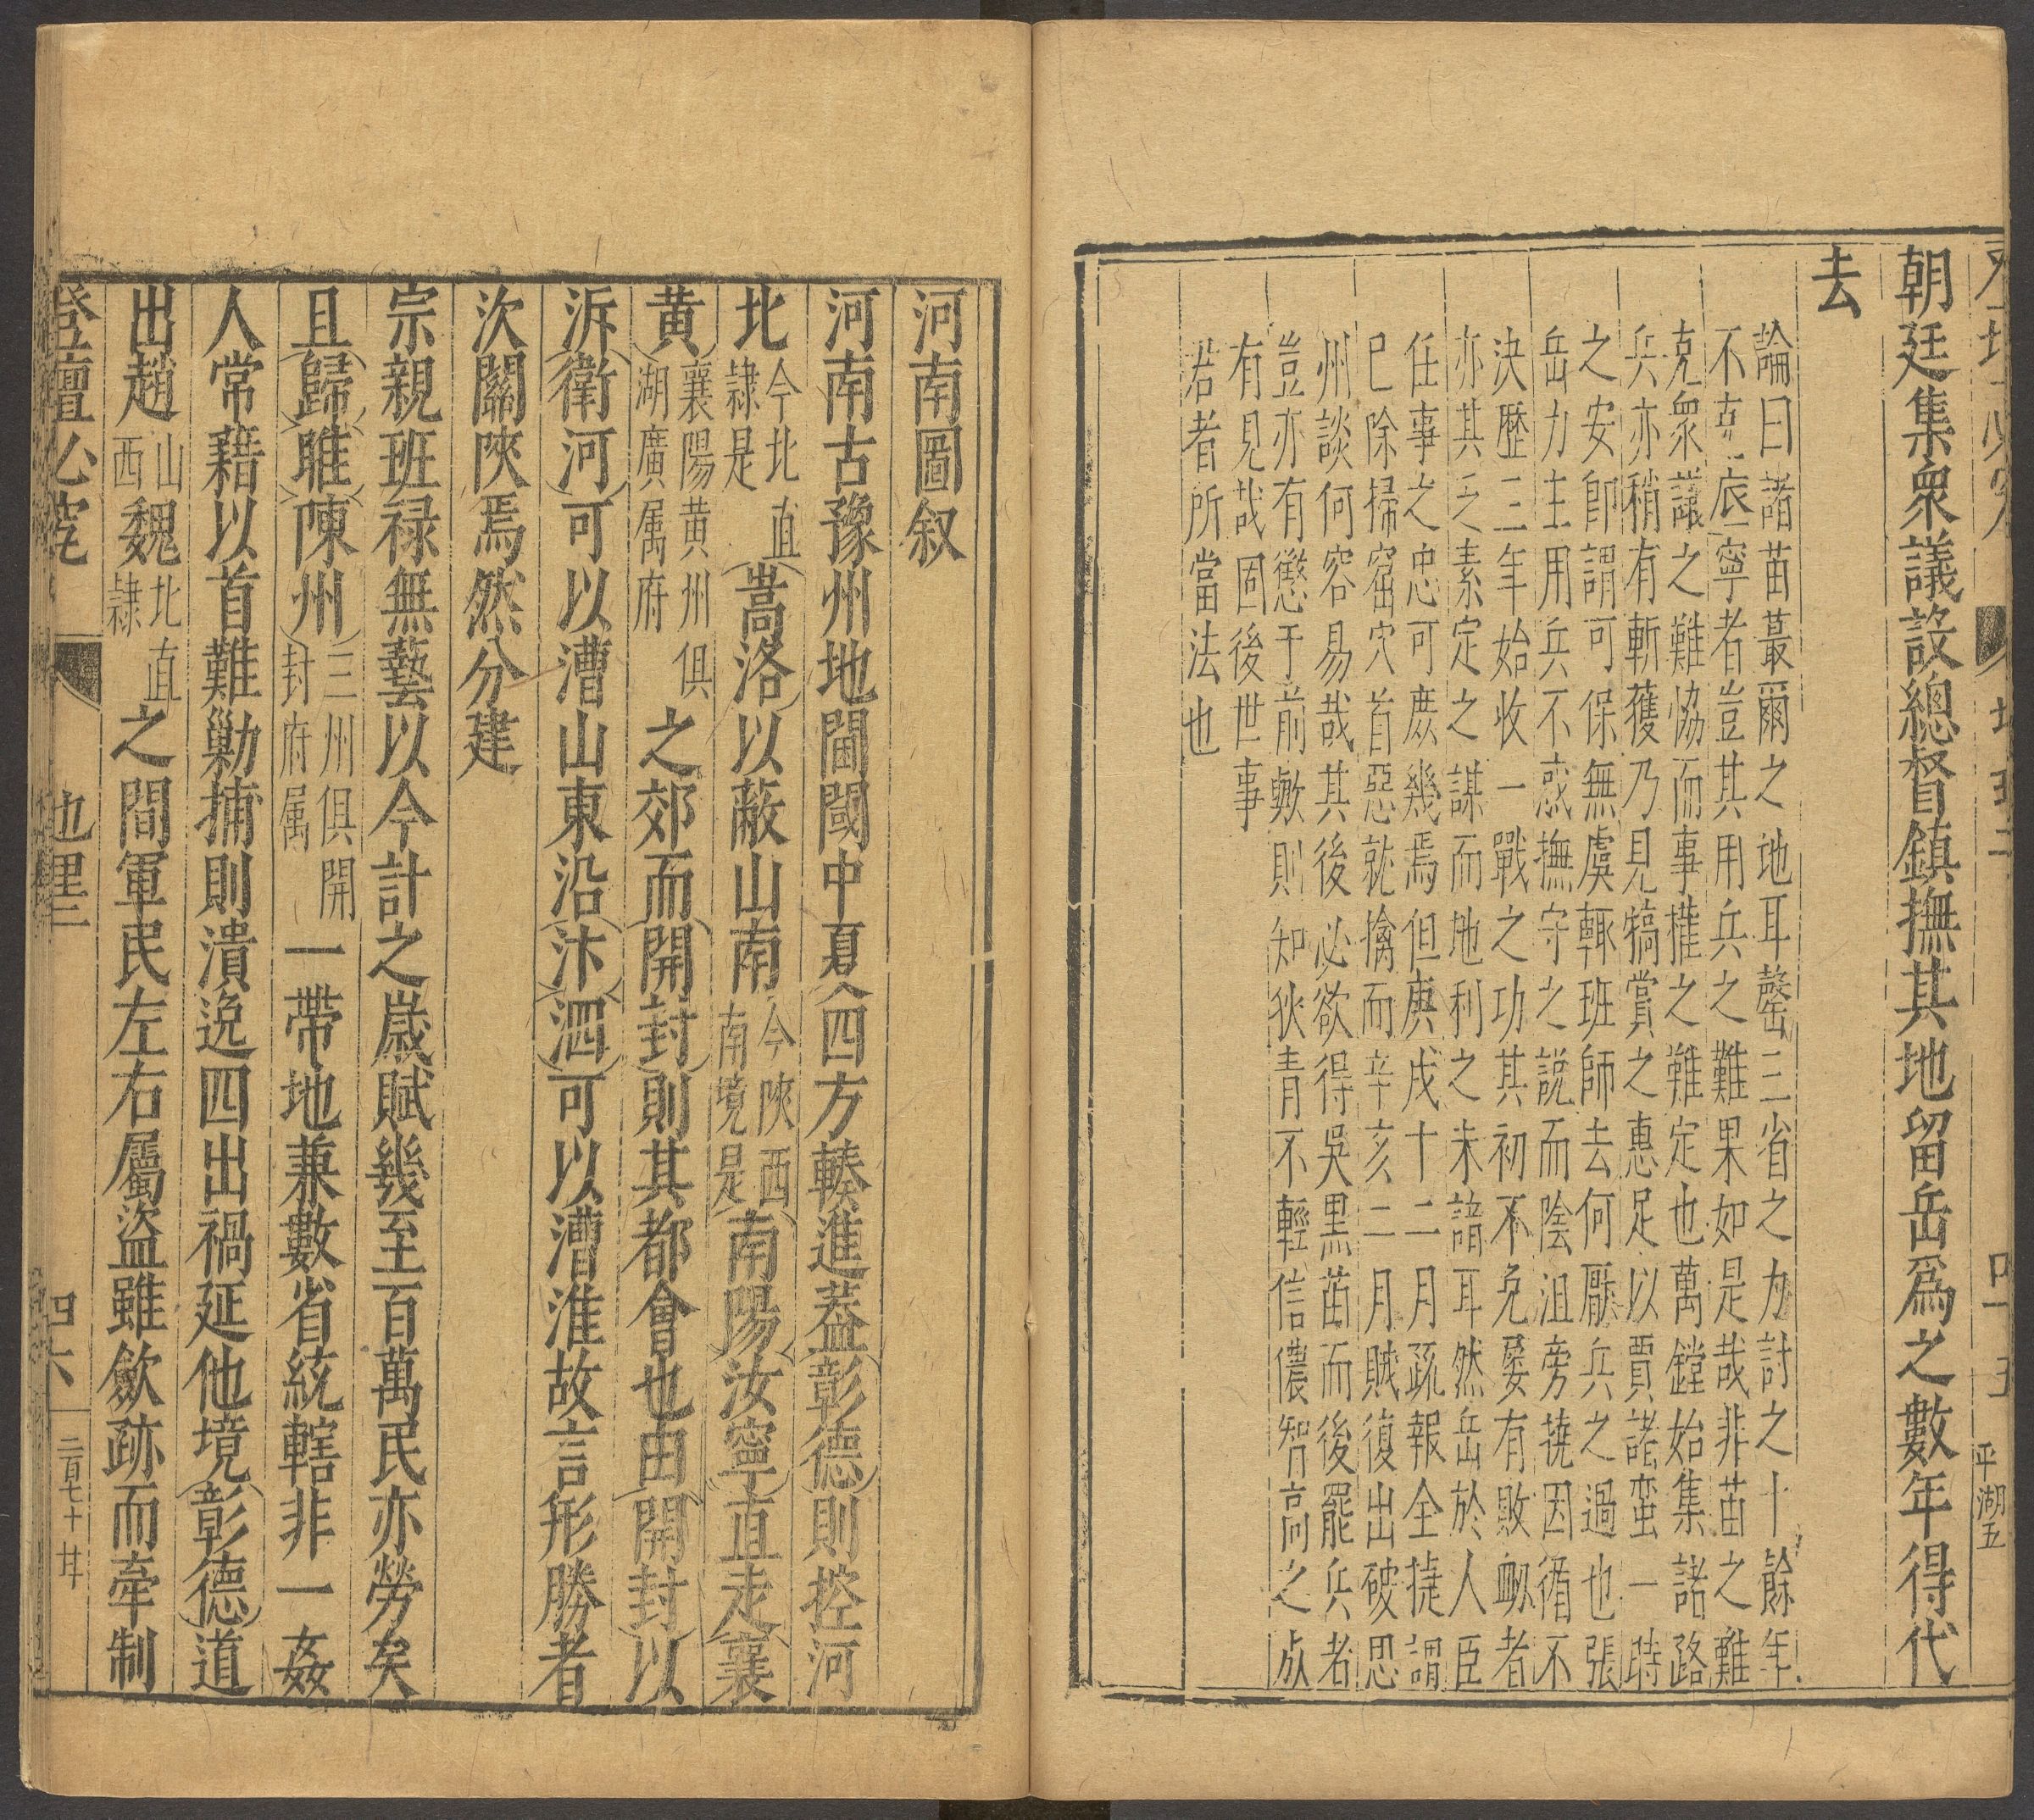 朝廷集衆議設總督鎮撫其地留岳爲之數年得代
去
論曰諸苗蕞爾之地耳罄三省之力討之十餘年
不克底寧者豈其用兵之難果如是哉非苗之難
克衆議之難協而事權之難定也萬鏜始集諸路
兵亦稍有斬獲乃見犒賞之惠足以賈諸蛮一時
之安卽謂可保無虞輒班師去何厭兵之過也張
岳力主用兵不惑撫守之說而陰沮旁撓因循不
決歷三年始收一戰之功其初不免屢有敗衂者
亦其乏素定之謀而地利之未諳耳然岳於人臣
任事之忠可庶幾焉但庚戌十二月疏報全捷謂
已除掃窟穴首惡就擒而辛亥二月賊復出破思
州談何容易哉其後必欲得吳黑苗而後罷兵者
豈亦有懲于前歟則知狄青不輕信儂智高之死
有見哉固後世事
若者所當法也
平湖五
河南圖叙
河南古豫州地閫閾中夏八四方輳進葢彰德則控河
北今北直隷是嵩洛以蔽山南今陝西南境是南陽汝寧直走襄
黄襄陽黄州俱湖廣属府之郊而開封則其都會也由開封以
泝衛河可以漕山東沿汴泗可以漕淮故言形勝者
次關陝焉然分建
宗親班禄無藝以今計之歲賦幾至百萬民亦勞矣
且歸睢陳州三州俱開封府属一帶地兼數省統轄非一姦
人常藉以首難勦捕則潰逸四出禍延他境彰德道
出趙山西魏北直隷之間軍民左右屬盜雖歛跡而牽制
登壇必究 地理二 四六 二百七十廿